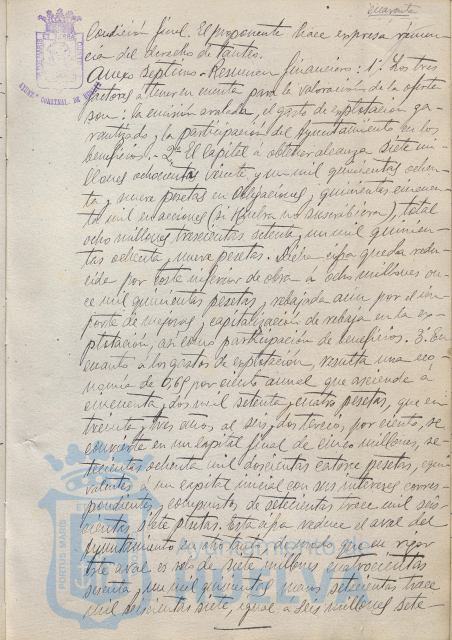 cuarenta
condición final. El proponente hace expresa renun-
cia del derecho de tanteo.
Anexo Septimo.- Resumen financiero: 1º Los tres
factores a tener en cuenta para la valoración de la oferta
son: la emisión avalada, el gasto de explotación ga-
rantizado, y la participación del Ayuntamiento en los
beneficios.- 2º El Capital á obtener alcanza siete mi-
llones ochocientas veinte y un mil quinientas ochen-
ta y nueve pesetas en obligaciones y quinientas cincuen-
ta mil en acciones (si Huelva las suscribiera), total
ocho millones trescientas setenta y un mil quinien-
tas ochenta y nueve pesetas. Dicha cifra queda redu-
cida por coste inferior de obra á ocho millones on-
ce mil quinientas pesetas, rebajada aun por el im-
porte de mejoras, capitalización de rebaja en la ex-
plotación, asi como participación de beneficios. 3º En
cuanto á los gastos de explotación, resulta una eco-
nomia de 0,65 por ciento anual que asciende á
cincuenta y dos mil setenta y cuatro pesetas, que en
treinta y tres años al seis y dos tercios por ciento, se
convierte en un capital final de cinco millones, se-
tecientas ochenta mil doscientas catorce pesetas, equi-
valentes á un capital inicial con sus intereses corres-
pondientes y compuestos de setecientas trece mil seis-
cientas siete pesetas. Esta cifra reduce el aval del
Ayuntamiento en otro tanto, de modo que en rigor
este aval es solo de siete millones cuatrocientas
sesenta y un mil quinientas menos setecientas trece
mil seiscientas siete, igual a seis millones sete-
PORTUS MARIS
Ayuntamiento de
HUELVA